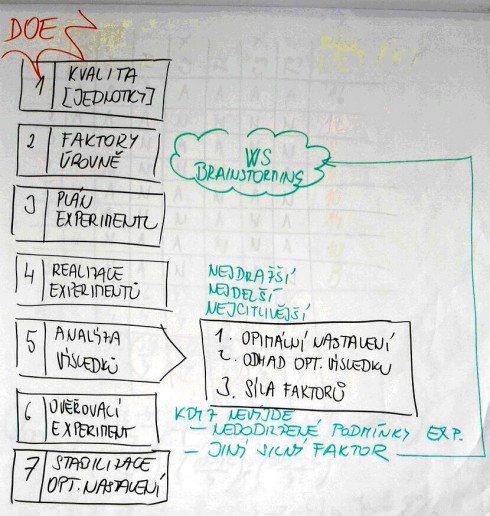 DOE
1 KVALITA
[JEDNOTKY]
2 FAKTORY
ÚROVNĚ
3 PLÁN
EXPERIMENTU
WS
BRAINSTORMING
4 REALIZACE
EXPERIMENTŮ
NEJDRAŽŠÍ
NEJDELŠÍ
NEJCITLIVĚJŠÍ
5 ANALÝZA
VÝSLEDKŮ
1. OPTIMÁLNÍ NASTAVENÍ
2. ODHAD OPT. VÝSLEDKU
3. SÍLA FAKTORŮ
6 OVĚŘOVACÍ
EXPERIMENT
KDYŽ NEVYJDE
— NEDODRŽENÉ PODMÍNKY EXP.
— JINÝ SILNÝ FAKTOR
7 STABILIZACE
OPT. NASTAVENÍ